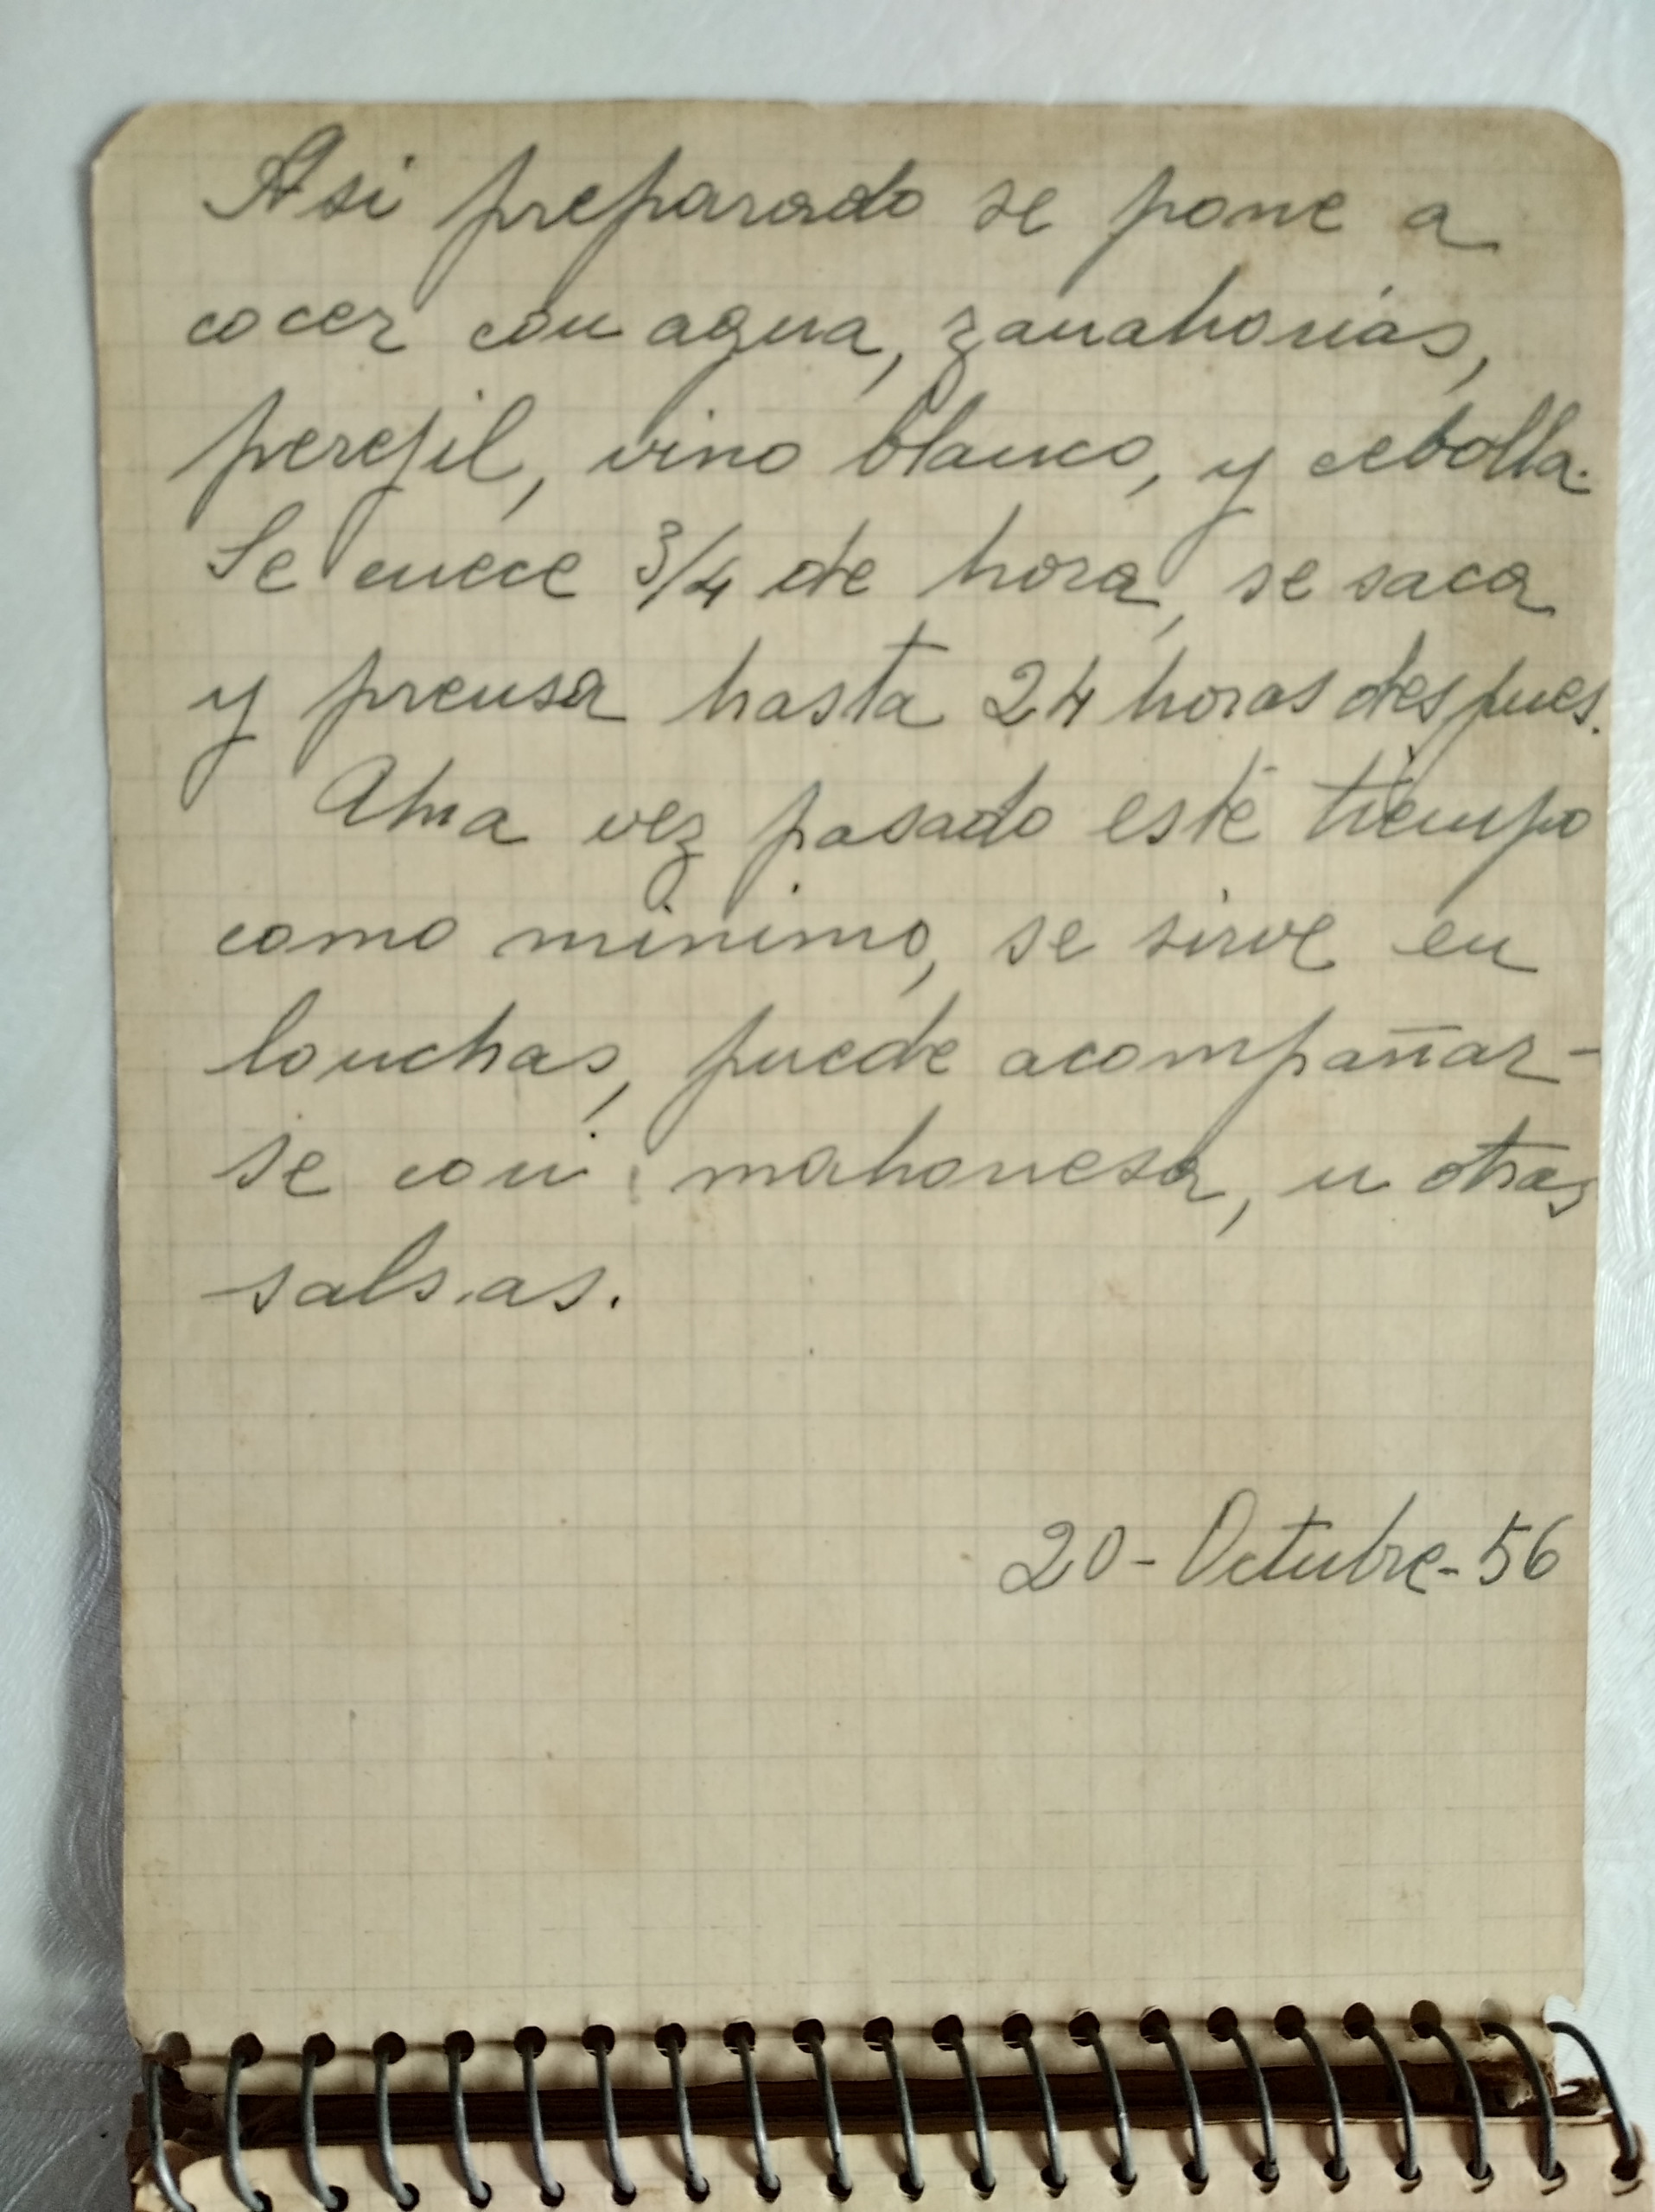 Asi preparado se pone a
cocer con agua, zanahorias,
perejil, vino blanco, y cebolla.
Se cuece 3/4 de hora, se saca
y prensa hasta 24 horas despues.
Una vez pasado este tiempo
como minimo, se sirve en
lonchas, puede acompañar-
se con mahonesa, u otras
salsas.
20-Octubre-56